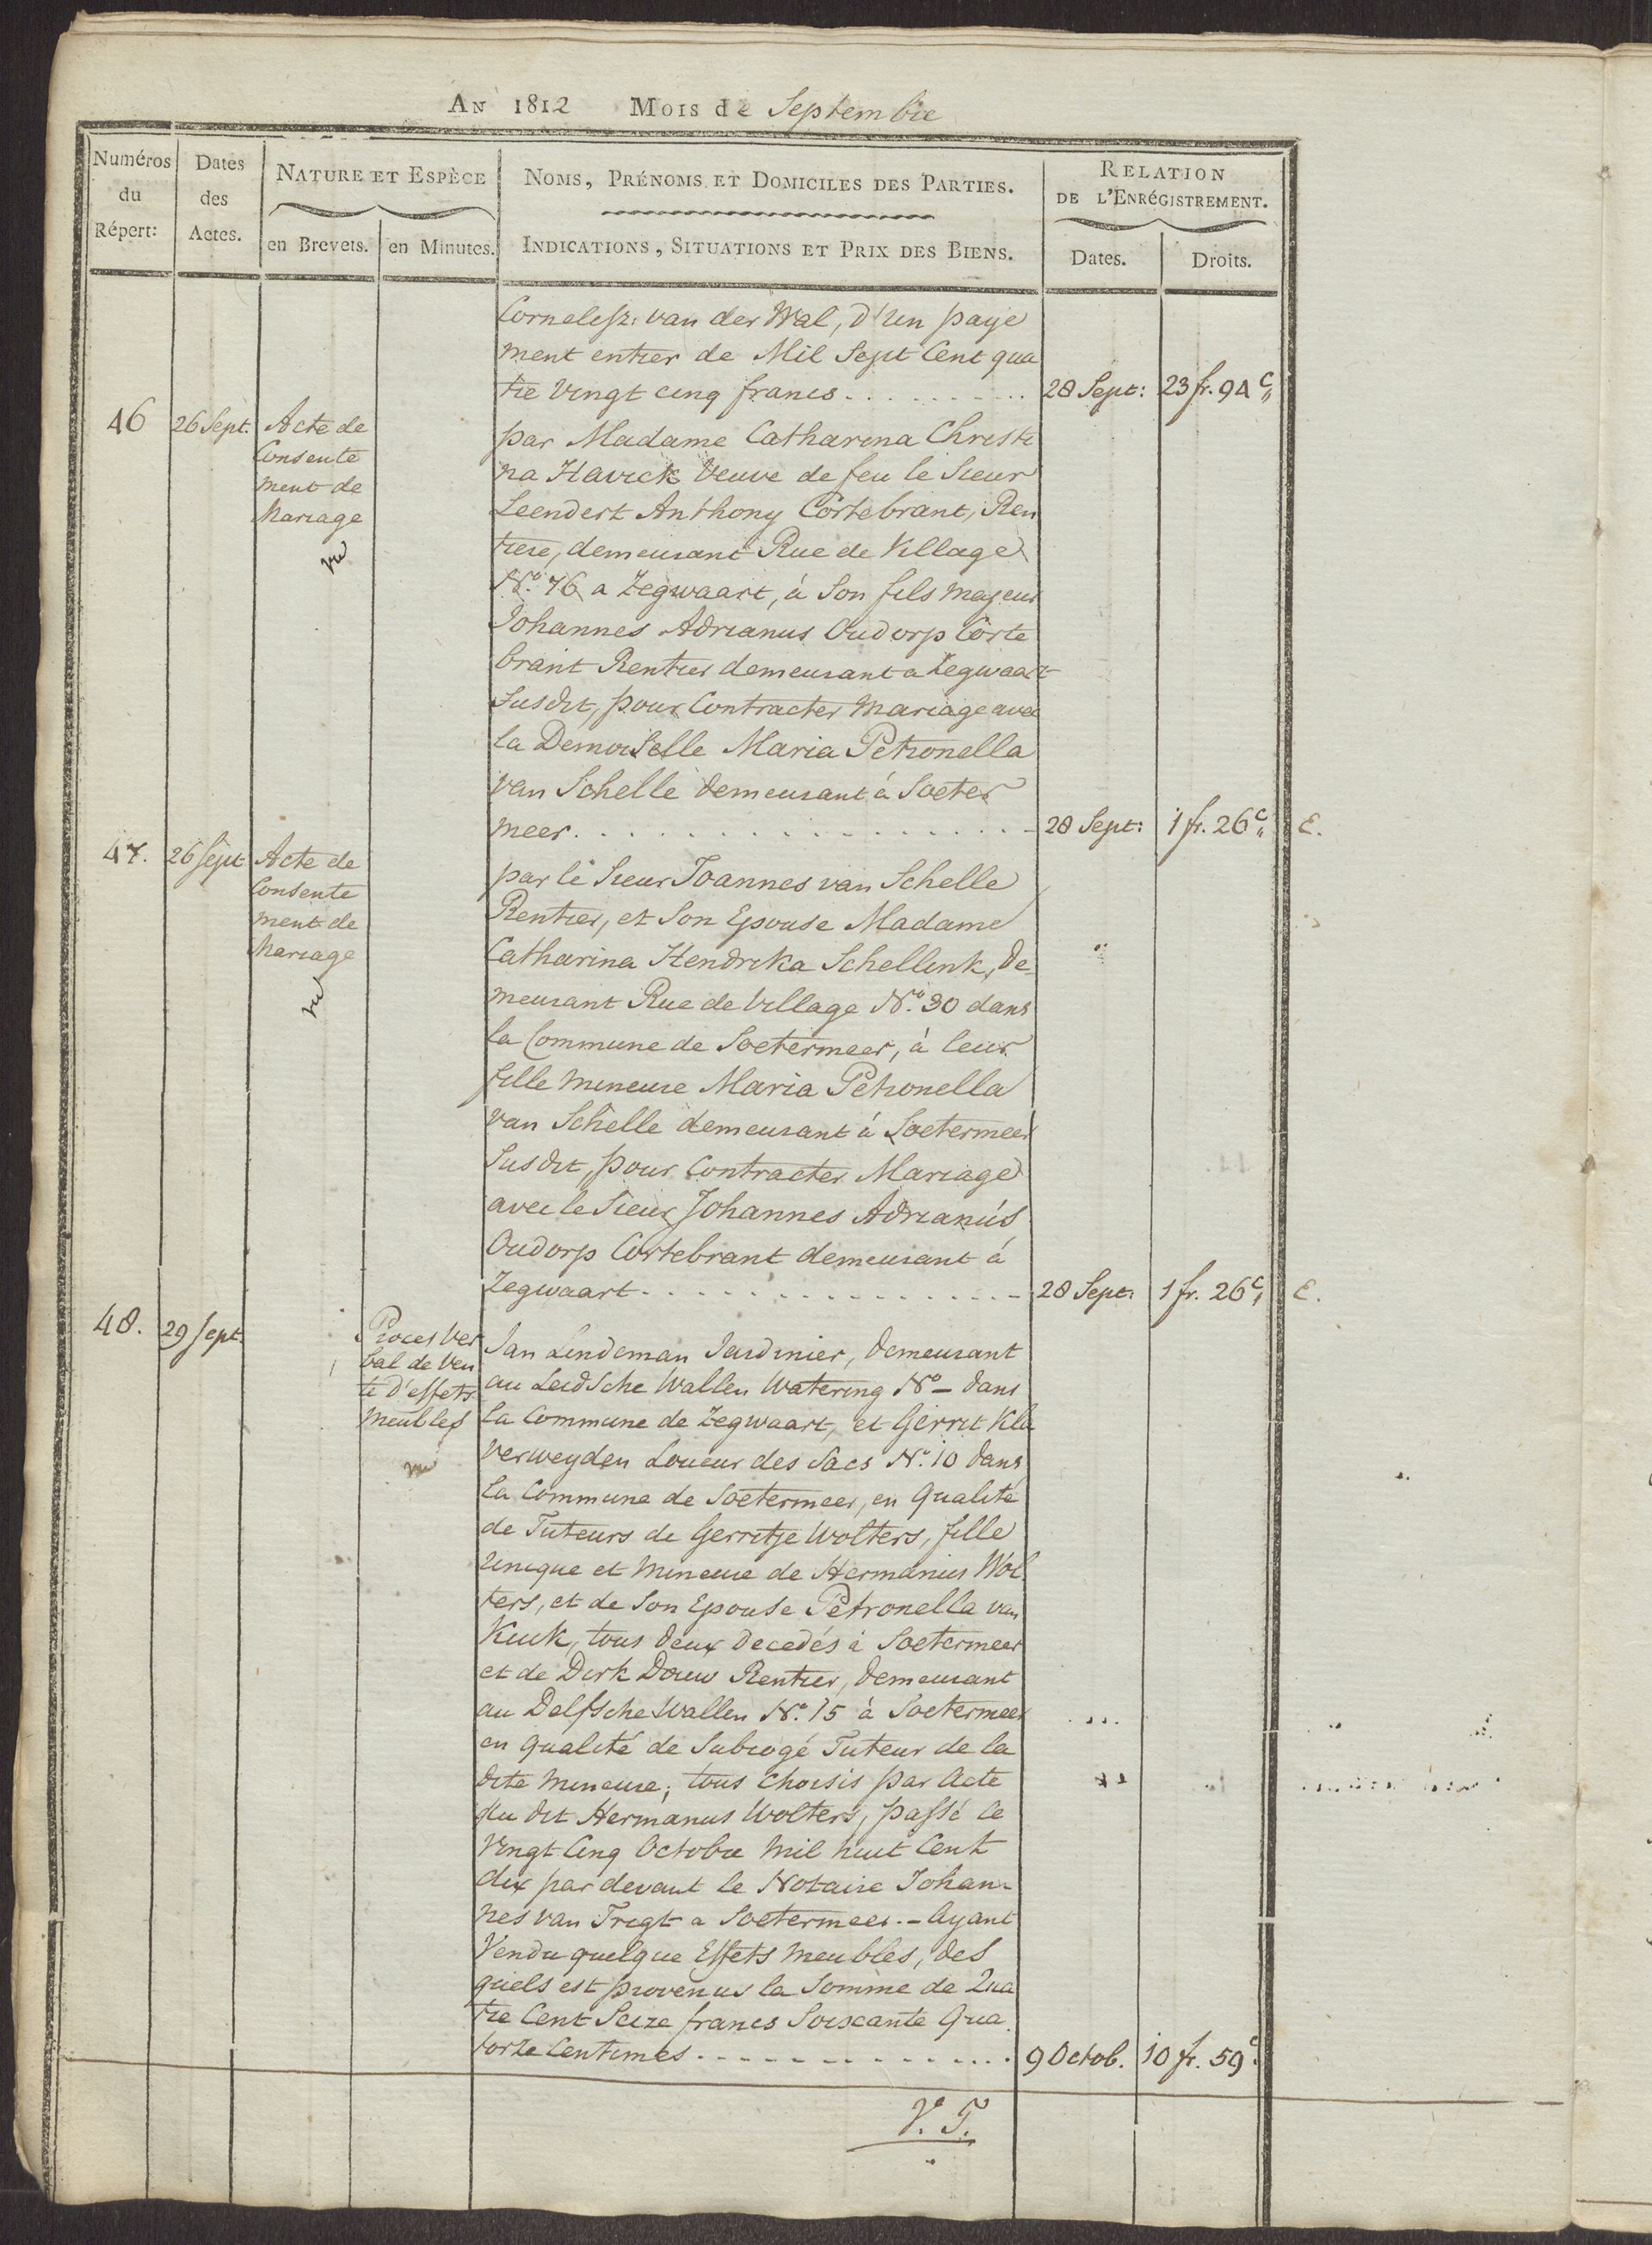 An 1812 Mois de Septembre
Numéros du Répert:
Dates des Actes.
Nature et Espèce
en Brevets.
en Minutes.
Noms, Prénoms et Domiciles des Parties.
Indications, Situations et Prix des Biens.
Relation de l'Enrégistrement.
Dates.
Droits.
Cornelisz: van der Wal, d'un paye
ment entier de Mil Sept Cent qua
tre Vingt cinq francs . . . . . . . . . . 28 Sept: 23 fr. 94 c„
46 26 Sept. Acte de
Consente
ment de
Mariage
par Madame Catharina Christi
na Havick Veuve de feu le Sieur
Leendert Anthony Cortebrant, Ren
tiere, demeurant Rue de Village
No. 76 a Zegwaart, à Son fils Majeur
Johannes Adrianus Oudorp Corte
brant Rentier demeurant a Zegwaart
Susdit, pour Contracter Mariage avec
la Demoiselle Maria Petronella
van Schelle demeurant á Soeter
meer. . . . . . . . . . . . . . . . . 28 Sept: 1 fr. 26 c„ E.
47. 26 Sept Acte de
Consente
ment de
Mariage
par le Sieur Joannes van Schelle
Rentier, et Son Epouse Madame
Catharina Hendrika Schellink, De
meurant Rue de Village No. 30 dans
la Commune de Soetermeer, à leur
fille mineure Maria Petronella
van Schelle demeurant á Soetermeer
Susdit, pour Contracter Mariage
avec le Sieur Johannes Adrianus
Oudorp Cortebrant demeurant á
Zegwaart . . . . . . . . . . . . . . . 28 Sept: 1 fr. 26 c„ E.
48. 29 Sept. Proces Ver
bal de Ven
te d'effets
meubles
Jan Lindeman Jardinier, Demeurant
au Leidsche Wallen Watering No – dans
la Commune de Zegwaart, et Gerrit Kla
verweyden Loueur des Sacs No. 10 dans
la Commune de Soetermeer, en Qualité
de Tuteurs de Gerritje Wolters, fille
unique et Mineure de Hermanus Wol
ters, et de Son Epouse Petronella van
Kuik, tous deux Decedés à Soetermeer
et de Dirk Douw Rentier, Demeurant
au Delfsche Wallen No. 15 à Soetermeer
en qualité de Subrogé Tuteur de la
dite Mineure, tous choisis par Acte
du dit Hermanus Wolters, passé le
Vingt Cinq Octobre Mil huit Cent
dix par devant le Notaire Johan-
nes van Trigt a Soetermeer. – Ayant
Vendu quelque Effets Meubles, des
quels est provenus la Somme de Qua
tre Cent Seize francs Soixante Qua
torze Centimes . . . . . . . . . . . . . 9 Octob. 10 fr. 59 c.
V. T.